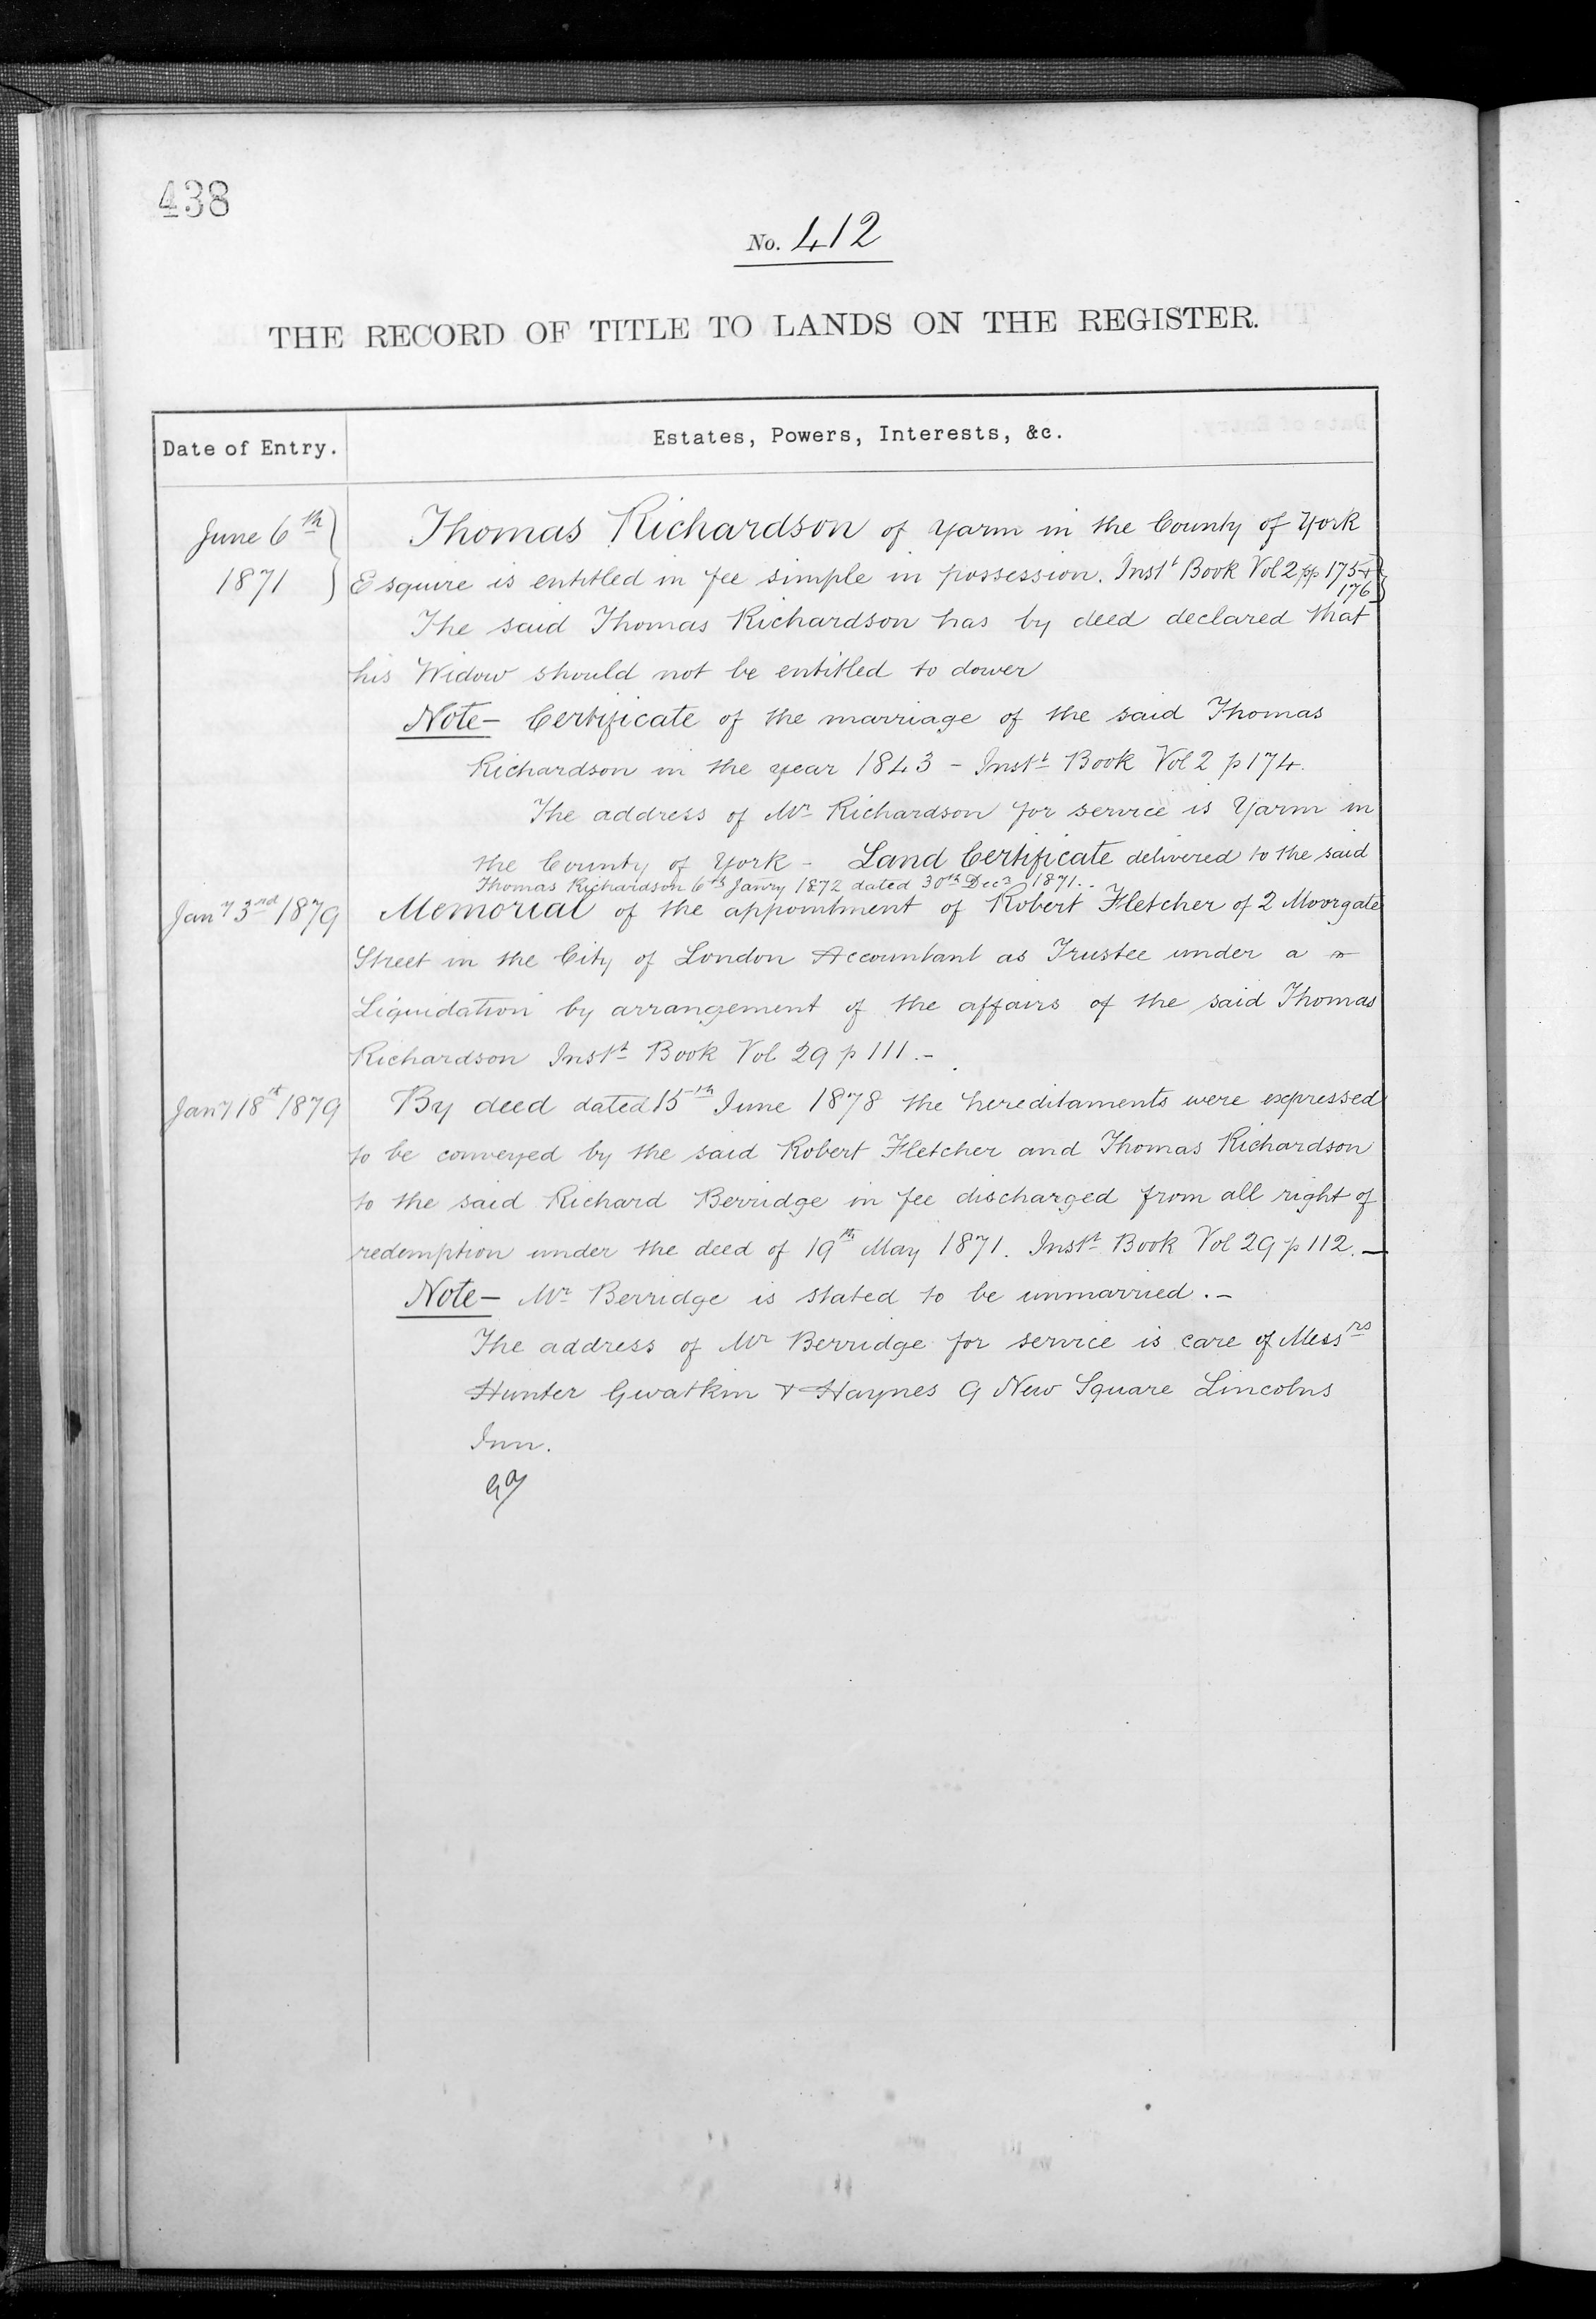 438
No. 412
THE RECORD OF TITLE TO LANDS ON THE REGISTER.
Date of Entry.
Estates, Powers, Interests, &c.
June 6th
1871
Thomas Richardson of Yarm in the County of York
Esquire is entitled in fee simple in possession. Inst Book Vol 2 pp 175 &
176
The said Thomas Richardson has by deed declared that
his Widow should not be entitled to dower
Note - Certificate of the marriage of the said Thomas
Richardson in the year 1843 - Inst Book Vol 2 p 174.
The address of Mr Richardson for service is Yarm in
the County of York - Land Certificate delivered to the said
Thomas Richardson 6th Janry 1872 dated 30th Decr 1871.
Jany 3rd 1879
Memorial of the appointment of Robert Fletcher of 2 Moorgate
Street in the City of London Accountant as Trustee under a
Liquidation by arrangement of the affairs of the said Thomas
Richardson Inst Book Vol 29 p 111. -
Jany 18th 1879
By deed dated 15th June 1878 the hereditaments were expressed
to be conveyed by the said Robert Fletcher and Thomas Richardson
to the said Richard Berridge in fee discharged from all right of
redemption under the deed of 19th May 1871. Inst Book Vol 29 p 112. -
Note - Mr Berridge is stated to be unmarried. -
The address of Mr Berridge for service is care of Messrs
Hunter Gwatkin & Haynes 9 New Square Lincolns
Inn.